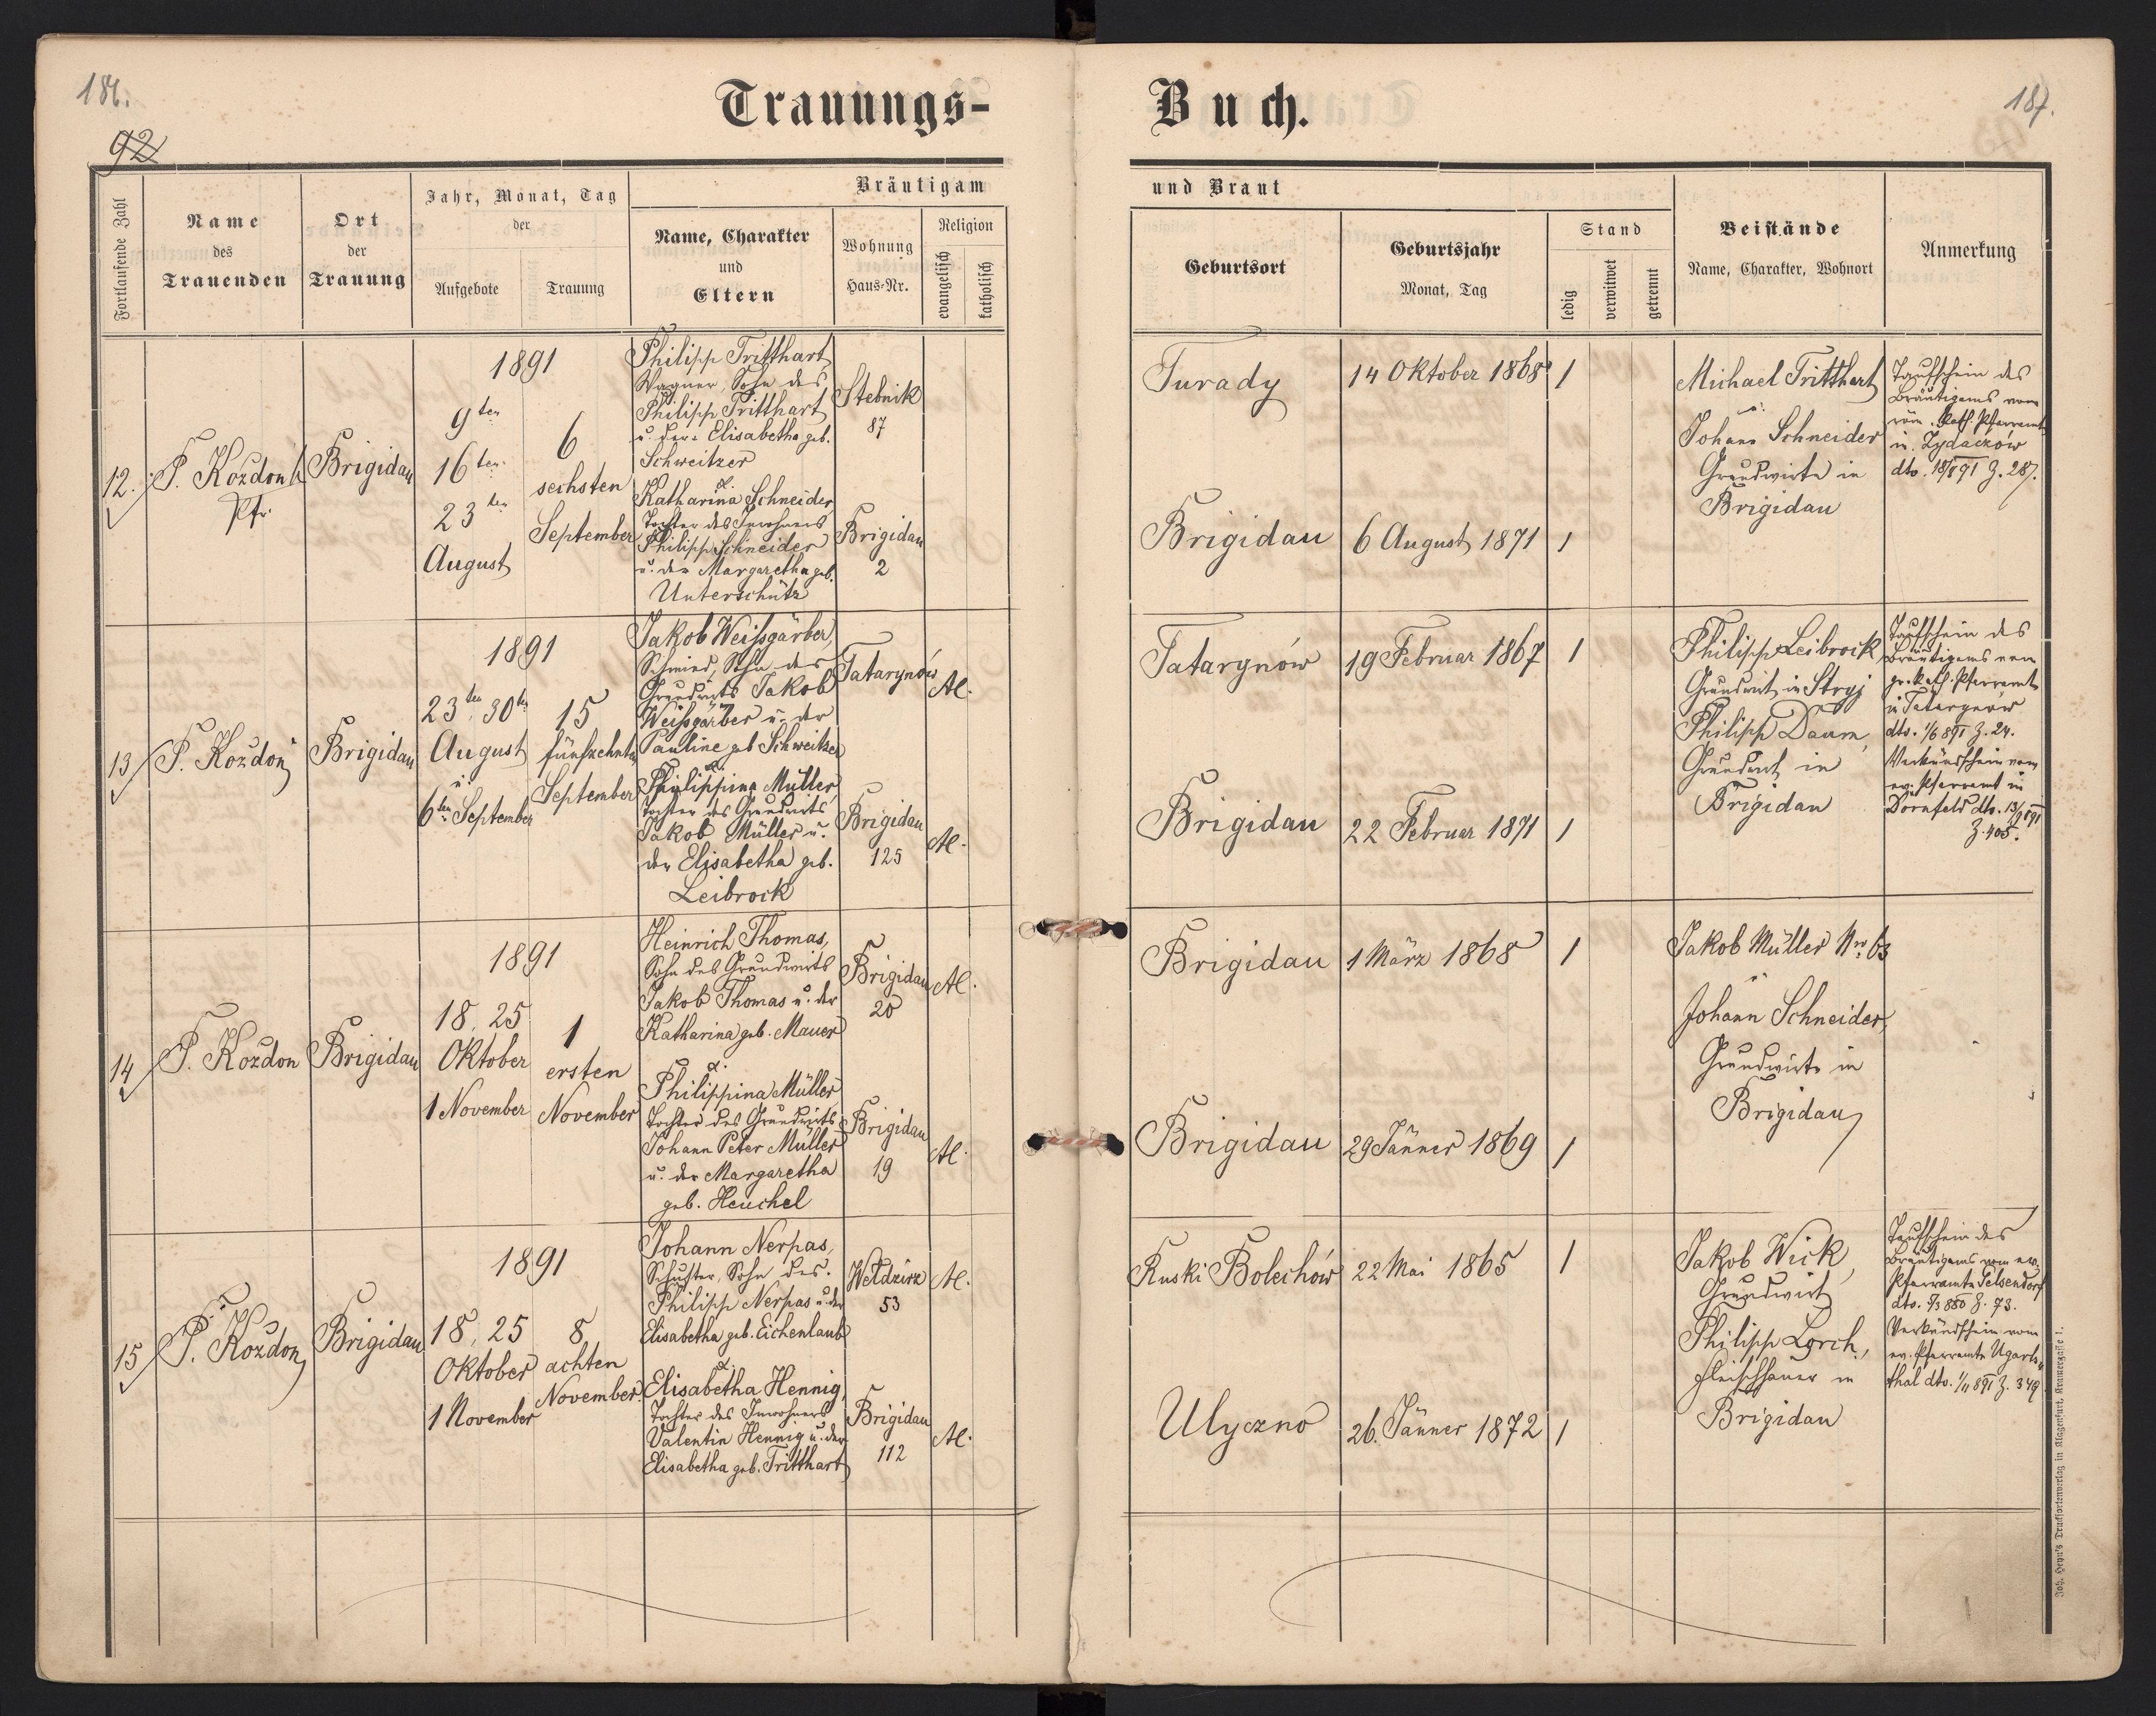 186.
187.
92
Trauungs-Buch.
Fortlaufende Zahl
Name
des
Trauenden
Ort
der
Trauung
Jahr, Monat, Tag
der
Aufgebote
Trauung
Bräutigam
und Braut
Name, Charakter
und
Eltern
Wohnung
Haus-Nr.
Religion
evangelisch
katholisch
Geburtsort
Geburtsjahr
Monat, Tag
Stand
ledig
verwitwet
getrennt
Beistände
Name, Charakter, Wohnort
Anmerkung
12.
P. Kozdon
Pfr.
Brigidau
1891
9ten
16ten
23ten
August
6
sechsten
September
Philipp Tritthart,
Wagner, Sohn des
Philipp Tritthart
u. der Elisabetha geb.
Schweitzer
u.
Katharina Schneider,
Tochter des Inwohners
Philipp Schneider
u. der Margaretha geb.
Unterschütz
Stebnik
87
Brigidau
2
Turady
14 Oktober 1868
1
Brigidau
6 August 1871
1
Michael Tritthart
u.
Johann Schneider
Grundwirte in
Brigidau
Taufschein des
Bräutigams vom
röm. kath. Pfarramt
in Zydaczów
Z. 287.
13
P. Kozdon
Brigidau
1891
23ten, 30ten
August
u.
6ten September
15
fünfzehnten
September
Jakob Weissgärber,
Schmied, Sohn des
Grundwirts Jakob
Weissgärber u. der
Pauline geb. Schweitzer
u.
Philippina Müller,
Tochter des Grundwirts
Jakob Müller u.
der Elisabetha geb.
Leibrock
Tatarynów
Brigidau
125
Al.
Al.
Tatarynów
19 Februar 1867
1
Brigidau
22 Februar 1871
1
Philipp Leibrock
Grundwirt in Stryj
Philipp Daum,
Grundwirt in
Brigidau
Taufschein des
Bräutigams vom
gr. kath. Pfarramt
in Tatarynów
dto. 1/6 891 Z. 24.
Verkündschein vom
ev. Pfarramt in
Dornfeld dto. 13/9 891
Z. 405.
14
P. Kozdon
Brigidau
1891
18, 25
Oktober
1 November
1
ersten
November
Heinrich Thomas,
Sohn des Grundwirts
Jakob Thomas u. der
Katharina geb. Mauer
u.
Philippina Müller,
Tochter des Grundwirts
Johann Peter Müller
u. der Margaretha
geb. Heuchel
Brigidau
20
Brigidau
19
Al.
Al.
Brigidau
1 März 1868
1
Brigidau
29 Jänner 1869
1
Jakob Müller Nro 63
u.
Johann Schneider,
Grundwirte in
Brigidau
15
P. Kozdon
Brigidau
1891
18, 25
Oktober
1 November
8,
achten
November
Johann Nerpas,
Schuster, Sohn des
Philipp Nerpas u. der
Elisabetha geb. Eichenlaub
u.
Elisabetha Hennig,
Tochter des Inwohners
Valentin Hennig u. der
Elisabetha geb. Tritthart
Weldzirz
53
Brigidau
112
Al.
Al.
Ruski Bolechów
22 Mai 1865
1
Ulyczno
26. Jänner 1872
1
Jakob Wick,
Grundwirt
Philipp Lorch,
Fleischhauer in
Brigidau
Taufschein des
Bräutigams vom ev.
Pfarramte Gelsendorf
Z. 73.
Verkündschein vom
ev. Pfarramte Ugarts-
thal dto. 1/11 891 Z. 349
Joh. Heyn's Drucksortenverlag in Klagenfurt, Kramergasse 1.